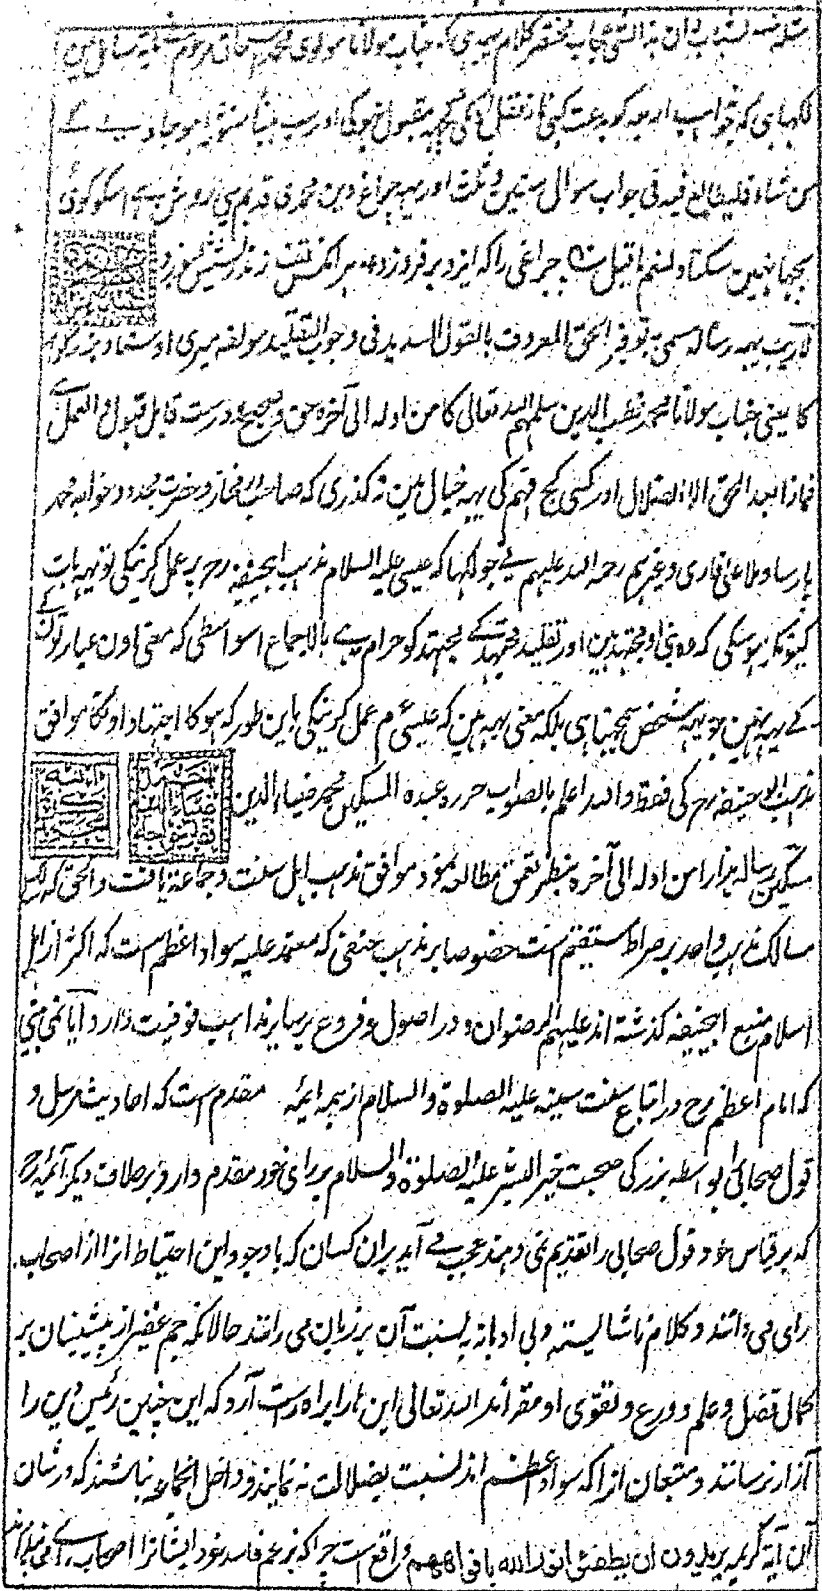 لکہا ہی کہ مذاہب اربعہ کو بدعت کہنی
من شاء فلیطالع فیہ فی جواب سوال ستین و ثلث اور یہہ چراغ دین محمدی قدیم سی روشن ہے اسکو کوئی
بجہا نہین سکتا و لنعم ما قیل چراغی را کہ ایزد بر فروزد ہر آنکس تف زند ریشش بسوزد
لاریب یہہ رسالہ مسمی بہ توفیر الحق المعروف بالقول السدید فی وجوب التقلید مولفہ میری اوستاد بزرگوار
کا یعنی جناب مولانا محمد قطب الدین سلمہم اللہ تعالی کا من اولہ الی آخرہ حق و صحیح و درست قابل قبول و العمل ہے
فماذا بعد الحق الا الضلال اور کسی کج فہم کی یہہ خیال مین نہ گذری کہ صاحب در مختار و حضرت مجدد و خواجہ محمد
پارسا و ملا علی قاری و غیرہم رحمہ اللہ علیہم نے جو لکہا کہ عیسی علیہ السلام مذہب ابیحنیفہ رح پر عمل کرینگی تو یہہ بات
کیونکر ہوسکی کہ وہ نبی او مجتہد ہین اور تقلید مجتہد کے مجتہد کو حرام ہے بالاجماع اسواسطی کہ معنی اون عبارتون
کے یہہ نہین جو یہہ شخص سمجہتا ہی بلکہ معنی یہہ ہین کہ عیسی ع م عمل کرینگی باین طور کہ ہوگا اجتہاد اونکا موافق
مذہب ابوحنیفہ رح کی فقط واللہ اعلم بالصواب حررہ عبدہ المسکین محمد ضیاء الدین
مسکین رسالہ ہزار امن اولہ الی آخرہ بنظر تعمق مطالعہ نمود موافق مذہب اہل سنت و جماعۃ یافت و الحق کہ
سالک مذہب واحد بر صراط مستقیم است خصوصا بر مذہب حنفی کہ معتمد علیہ سواد اعظم است کہ اکثر از اہل
اسلام متبع ابیحنیفہ گذشتہ اند علیہم الرضوان و در اصول و فروع بر سایر مذاہب فوقیت دارد آیا نمی بینی
کہ امام اعظم رح در اتباع سنت سنیہ علیہ الصلوۃ والسلام از ہمہ ایمہ مقدم است کہ احادیث مرسل و
قول صحابی بواسطہ بزرگی صحبت خیر البشر علیہ الصلوۃ والسلام بر رای خود مقدم دارد بر خلاف دیگر آئمہ رح
کہ بر قیاس خود قول صحابی را تقدیم نمی دہند عجب می آید بر ان کسان کہ باوجود این احتیاط انرا از اصحاب
رای می دانند و کلام ناشایستہ و بی ادبانہ بہ نسبت آن بر زبان می رانند حالانکہ جم غفیر از پیشینان بر
کمال فضل و علم و ورع و تقوی او مقر اند اللہ تعالی این ہا را براہ راست آرد کہ این چنین رئیس دین را
آزار نرسانند و متبعان انرا کہ سواد اعظم اند نسبت بضلالت نہ نمایند و داخل انجماعہ نباشند کہ در شان
آن آیۃ کریمہ یریدون ان یطفئوا نور اللہ بافواههم واقع است چرا کہ بزعم فاسد خود ایشانرا اصحاب رای